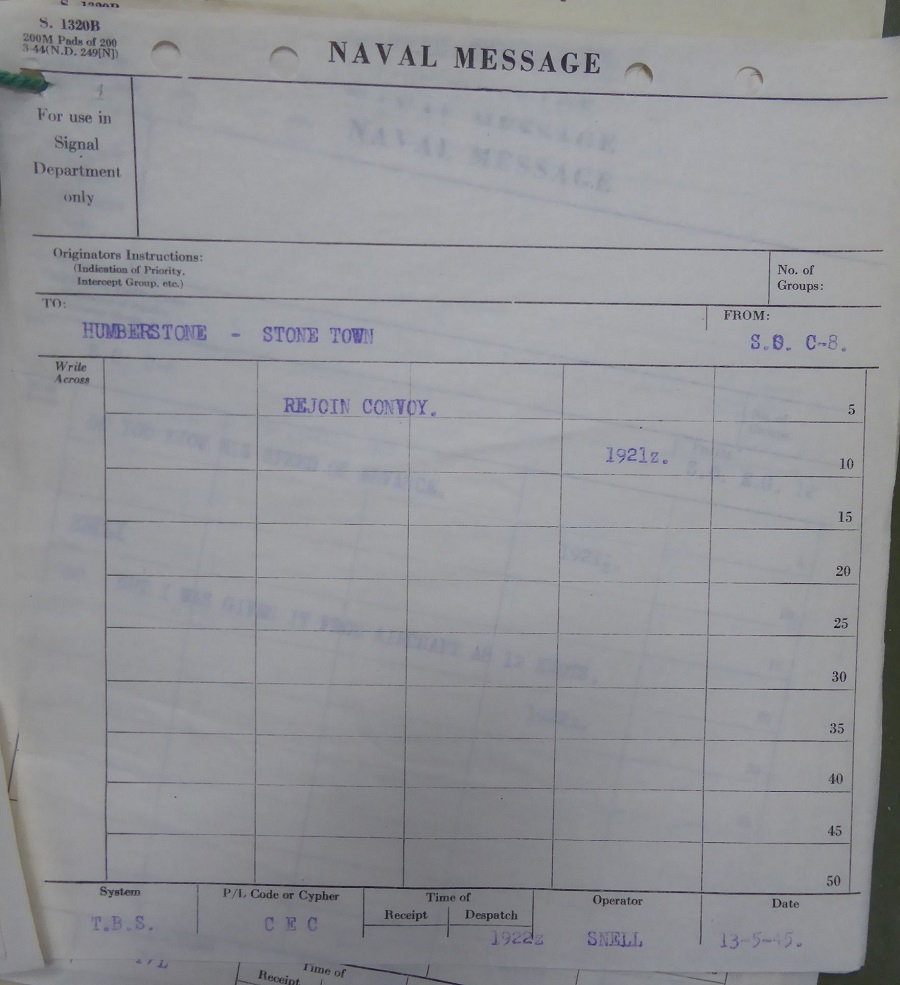 S. 1320B
200M Pads of 200
3-44(N.D. 249[N])
NAVAL MESSAGE
For use in
Signal
Department
only
Originators Instructions:
(Indication of Priority,
Intercept Group, etc.)
No. of
Groups:
TO:
FROM:
HUMBERSTONE - STONE TOWN
S.O. C-8.
Write
Across
REJOIN CONVOY.
5
1921z.
10
15
20
25
30
35
40
45
50
System
P/L Code or Cypher
Time of
Receipt
Despatch
Operator
Date
T.B.S.
C E C
1922z
SNELL
13-5-45.
Time of
Receipt